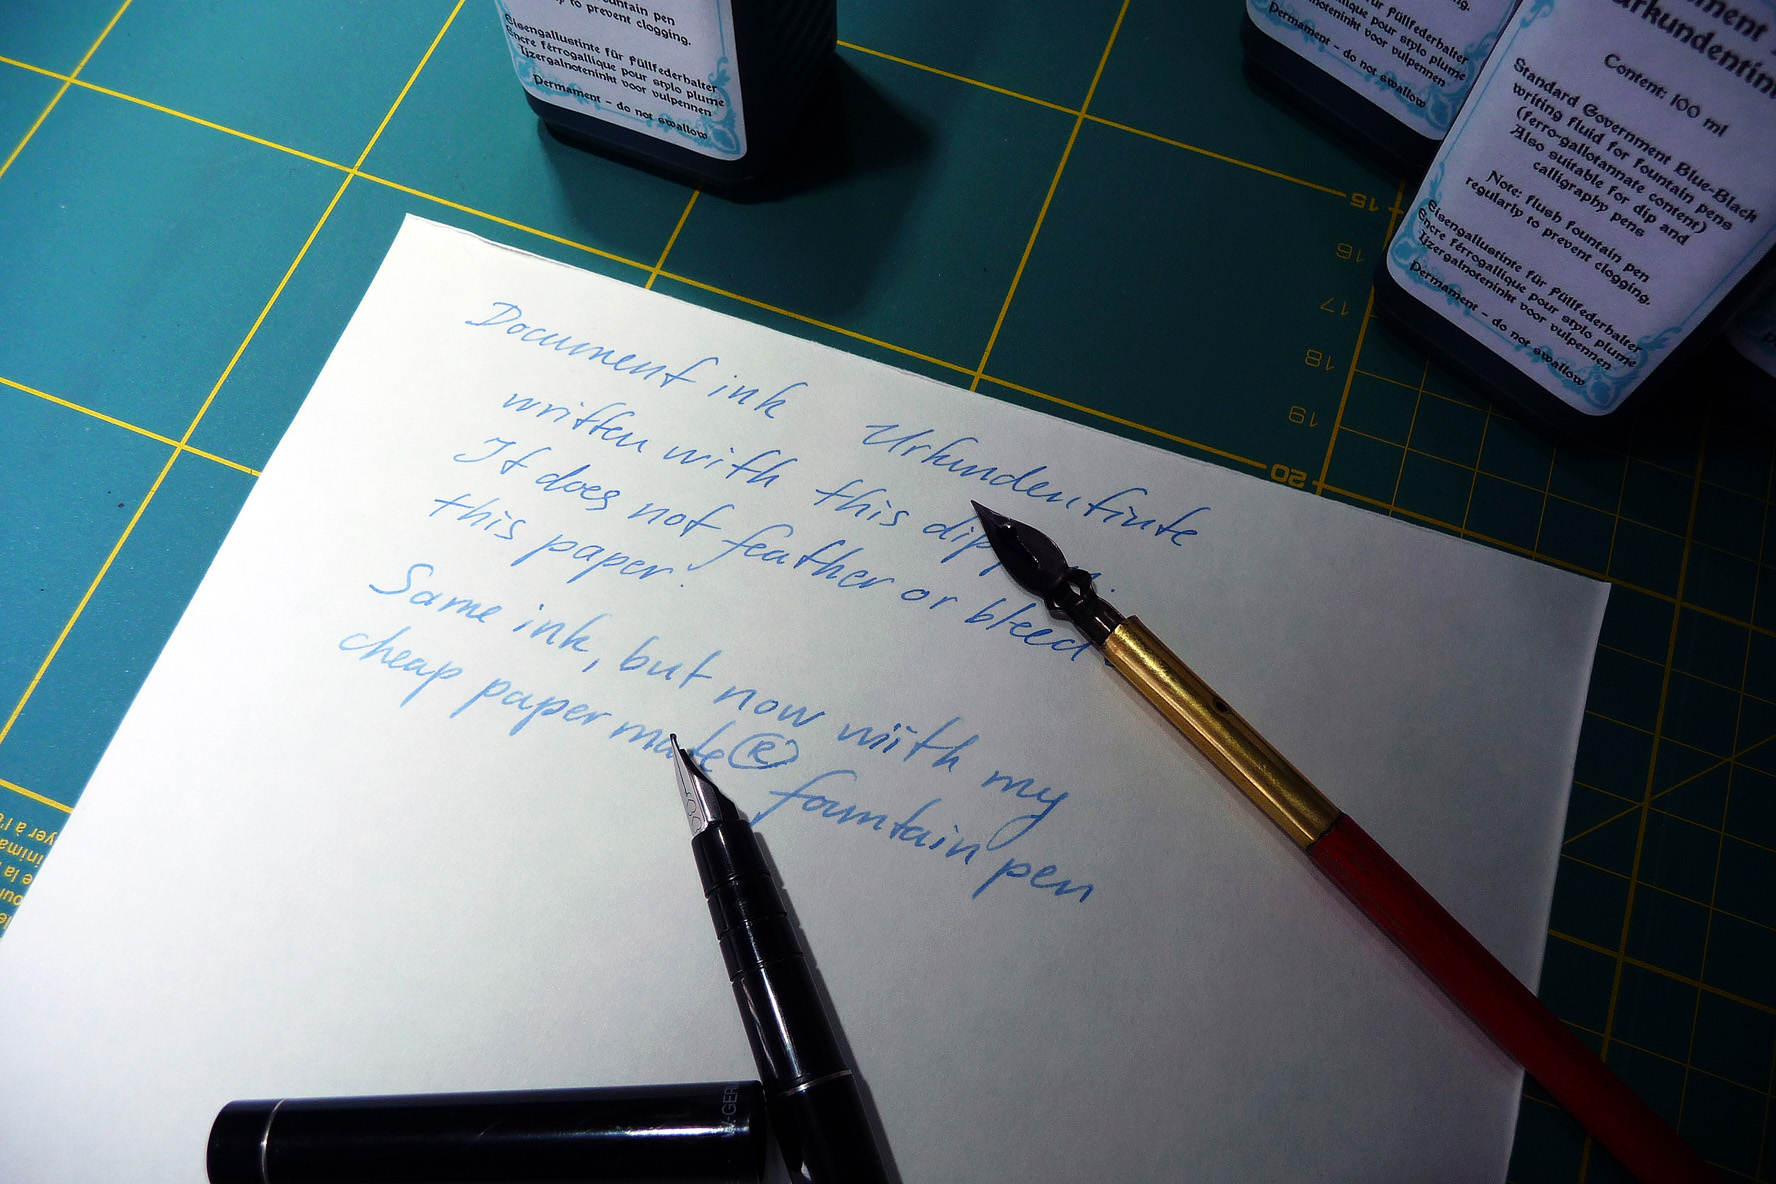 ountain pen
to prevent clogging.
Eisengallustinte für Füllfederhalter
Encre ferrogallique pour stylo plume
Ijzergalnoteninkt voor vulpennen
Permament - do not swallow
für Füllfederhalter
pour stylo plume
voor vulpennen
Permament - do not swallow
Urkundentin
Content: 100 ml
Standard Government Blue-Black
writing fluid for fountain pens
(ferro-gallotannate content)
Also suitable for dip and
calligraphy pens
Note: flush fountain pen
regularly to prevent clogging.
Eisengallustinte für Füllfederhalter
Encre ferrogallique pour stylo plume
Ijzergalnoteninkt voor vulpennen
Permament - do not swallow
15
16
17
18
19
20
Document ink Urkundentinte
written with this dip
It does not feather or bleed
this paper.
Same ink, but now with my
cheap papermate® fountain pen
W-GER